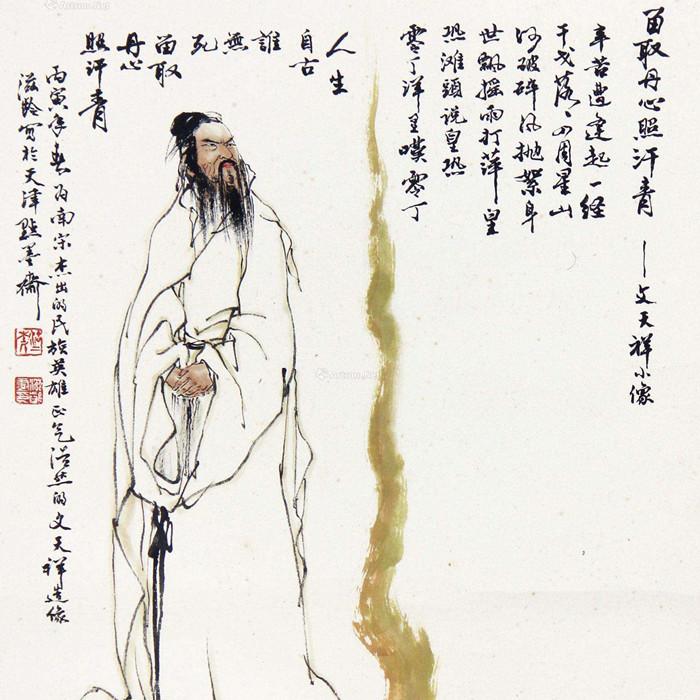 留取丹心照汗青 — 文天祥小像
辛苦遭逢起一经
干戈落々四周星山
河破碎风抛絮身
世飘摇雨打萍皇
恐滩頭说皇恐
零丁洋里嘆零丁
人生
自古
誰
無
死
留取
丹心
照汗青
丙寅年春为南宋杰出的民族英雄正气浩然的文天祥造像
滋龄寫於天津點墨齋
Artron.Net
Artron.Net